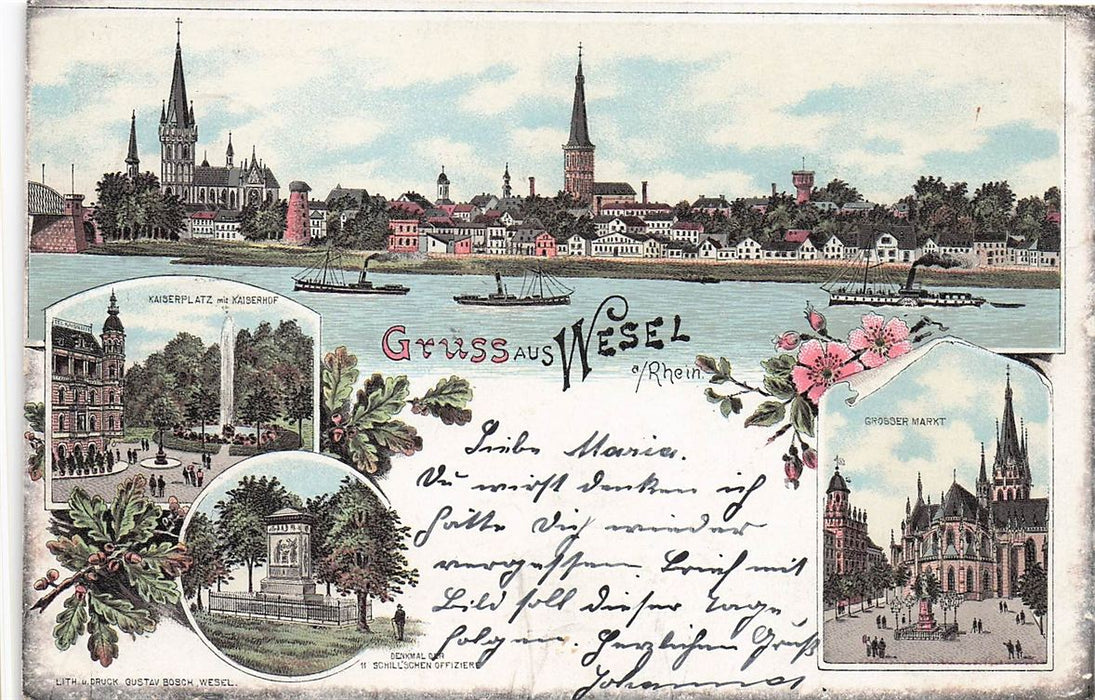 KAISERPLATZ mit KAISERHOF
GRUSS AUS WESEL
a/Rhein.
GROSSER MARKT
Liebe Maria.
Du wirst denken ich
hätte Dich wieder
vergessen. Brief mit
Bild soll dieser Tage
folgen. Herzlichen Gruß
Johannes.
DENKMAL DER
11 SCHILL'SCHEN OFFIZIERE
LITH. u. DRUCK GUSTAV BOSCH, WESEL.